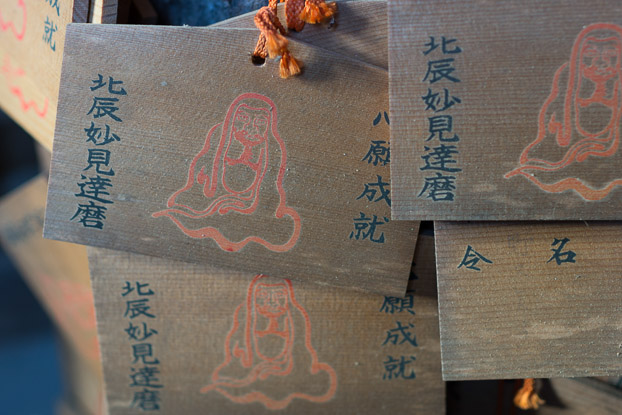 成就
北辰妙見達磨
心願成就
北辰妙見達磨
名
令
北辰妙見達磨
願成就